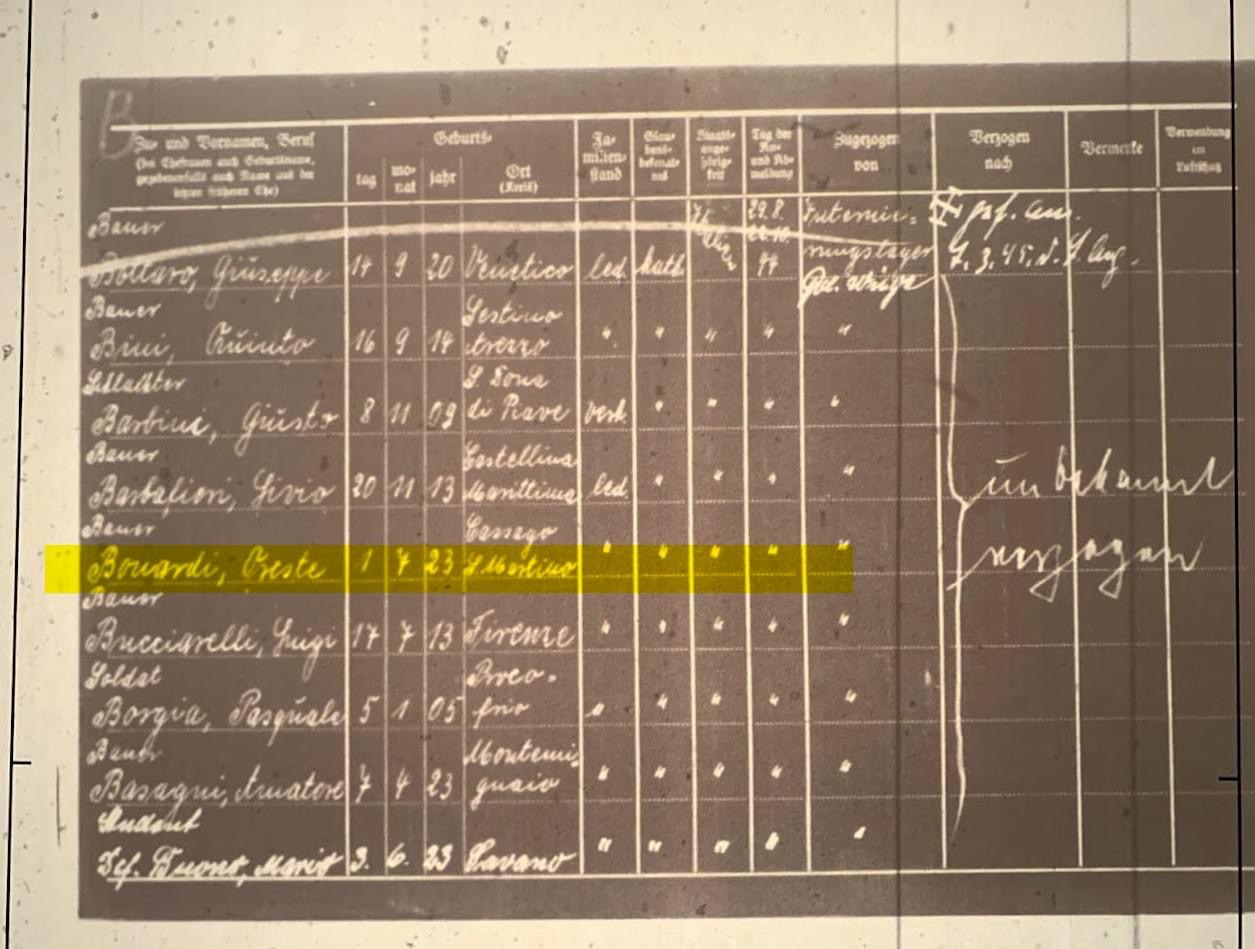 B
Zu- und Vornamen, Beruf
(bei Ehefrauen auch Geburtsname,
gegebenenfalls auch Name aus der
letzten früheren Ehe)
Geburts-
tag
mo-
nat
jahr
Ort
(Kreis)
Fa-
milien-
stand
Glau-
bens-
bekennt-
nis
Staats-
ange-
hörig-
keit
Tag der
An-
und Ab-
meldung
Zugezogen
von
Verzogen
nach
Vermerke
Verwendung
im
Luftschutz
Bauer 29.8. Internie- gef. am
Bottaro, Giuseppe 14 9 20 Venetico led. kath. 44 rungslager 7. 3. 45.
Bauer Sestino
Bini, Quinto 16 9 14 Arezzo " " " " "
Schlachter S. Dona
Barbini, Giusto 8 11 09 di Piave verh. " " " "
Bauer Castellina
Barbalioni, Livio 20 11 13 Marittima led. " " " " unbekannt
Bauer Cassago
Bonardi, Oreste 1 7 23 S. Martino " " " " " verzogen
Bauer
Bucciarelli, Luigi 17 7 13 Firenze " " " " "
Soldat
Borgia, Pasquale 5 1 05 " " " " "
Bauer Montemi-
Basagni, Amatore 7 4 23 gnaio " " " " "
Student
Buono, Mario 3. 6. 23 " " " " "